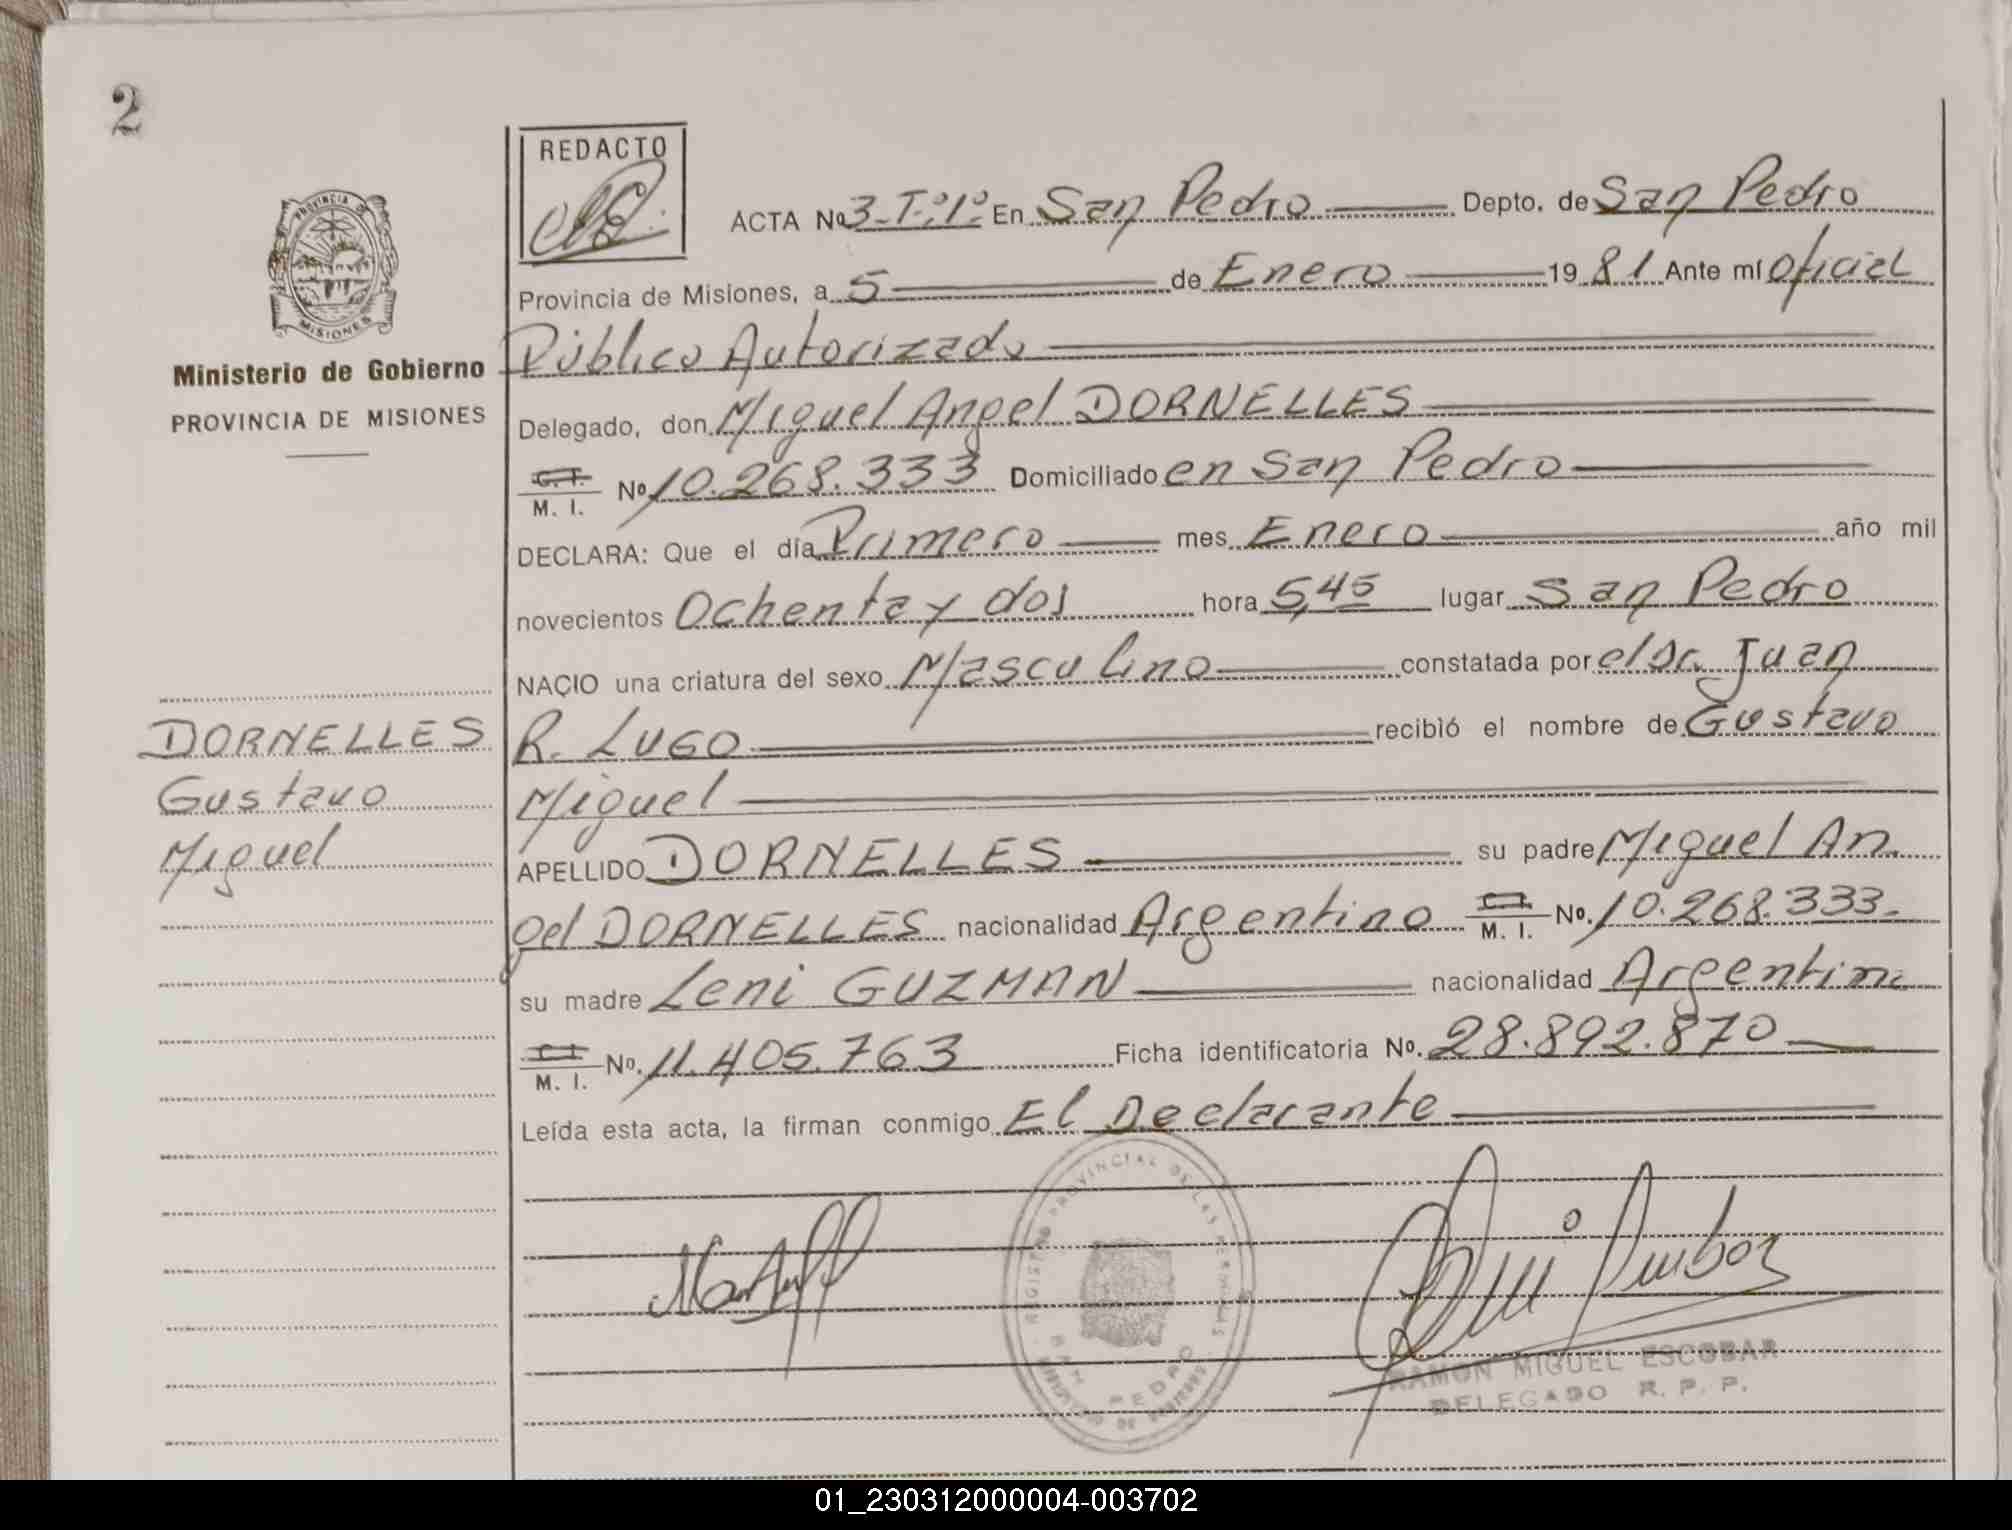 2
REDACTO
PROVINCIA DE
MISIONES
Ministerio de Gobierno
PROVINCIA DE MISIONES
DORNELLES
Gustavo
Miguel
ACTA Nº 3-Tº:1º En San Pedro Depto. de San Pedro
Provincia de Misiones, a 5 de Enero 1981 Ante mí oficial
Público Autorizado
Delegado, don Miguel Angel DORNELLES
C. I. M. I. Nº 10.268.333 Domiciliado en San Pedro
DECLARA: Que el día Primero mes Enero año mil
novecientos Ochenta y dos hora 5,45 lugar San Pedro
NACIO una criatura del sexo Masculino constatada por el Sr. Juan
R. LUGO recibió el nombre de Gustavo
Miguel
APELLIDO DORNELLES su padre Miguel An
gel DORNELLES nacionalidad Argentino C. I. M. I. Nº. 10.268.333.
su madre Leni GUZMAN nacionalidad Argentina
C. I. M. I. Nº. 11.405.763 Ficha identificatoria Nº. 28.892.870
Leída esta acta, la firman conmigo El Declarante
REGISTRO PROVINCIAL DE LAS PERSONAS
SAN PEDRO
MINISTERIO DE GOBIERNO
RAMON MIGUEL ESCOBAR
DELEGADO R. P. P.
01_230312000004-003702